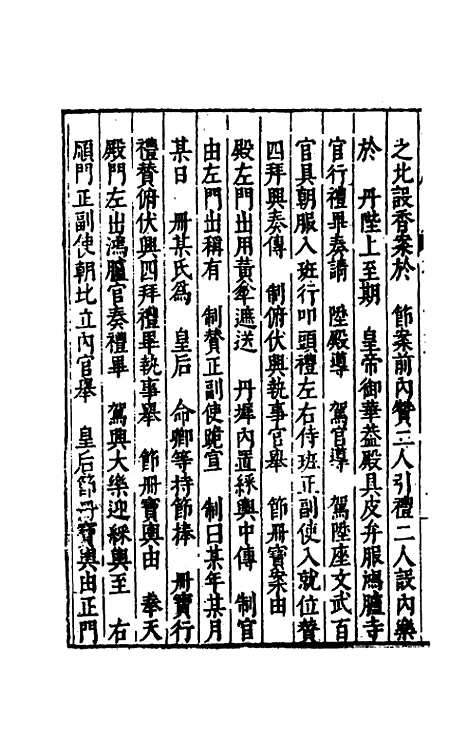 之北設香案於　節案前內贊二人引禮二人設內樂
於　丹陛上至期　皇帝御華葢殿具皮弁服鴻臚寺
官行禮畢奏請　陞殿導　駕官導　駕陞座文武百
官具朝服入班行叩頭禮左右侍班正副使入就位贊
四拜興奏傳　制俯伏興執事官舉　節冊寶案由
殿左門出用黃傘遮送　丹墀內置綵輿中傳　制官
由左門出稱有　制贊正副使跪宣　制曰某年某月
某日　冊某氏為　皇后　命卿等持節捧　冊寶行
禮贊俯伏興四拜禮畢執事舉　節冊寶輿由　奉天
殿門左出鴻臚官奏禮畢　駕興大樂迎綵輿至　右
順門正副使朝北立內官舉　皇后節冊寶輿由正門